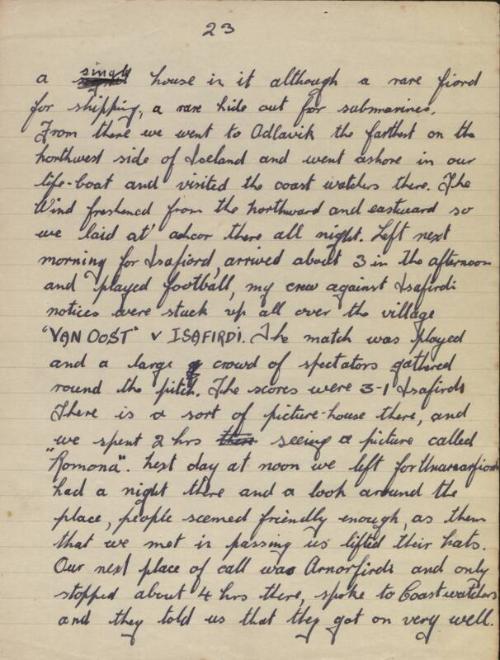 23
a single house in it although a rare fiord
for shipping, a rare hide out for submarines.
From there we went to Adlavik the farthest on the
northwest side of Iceland and went ashore in our
life-boat and visited the coast watchers there. The
Wind freshened from the northward and eastward so
we laid at anchor there all night. Left next
morning for Isafiord, arrived about 3 in the afternoon
and played football, my crew against Isafirdi
notices were stuck up all over the village
"VAN OOST" v ISAFIRDI. The match was played
and a large crowd of spectators gathered
round the pitch. The scores were 3-1 Isafirdi
There is a sort of picture-house there, and
we spent 2 hrs seeing a picture called
"Romona". Next day at noon we left for
had a night there and a look around the
place, people seemed friendly enough, as them
that we met in passing us lifted their hats.
Our next place of call was Arnorfirdi and only
stopped about 4 hrs there, spoke to Coastwatchers
and they told us that they got on very well.